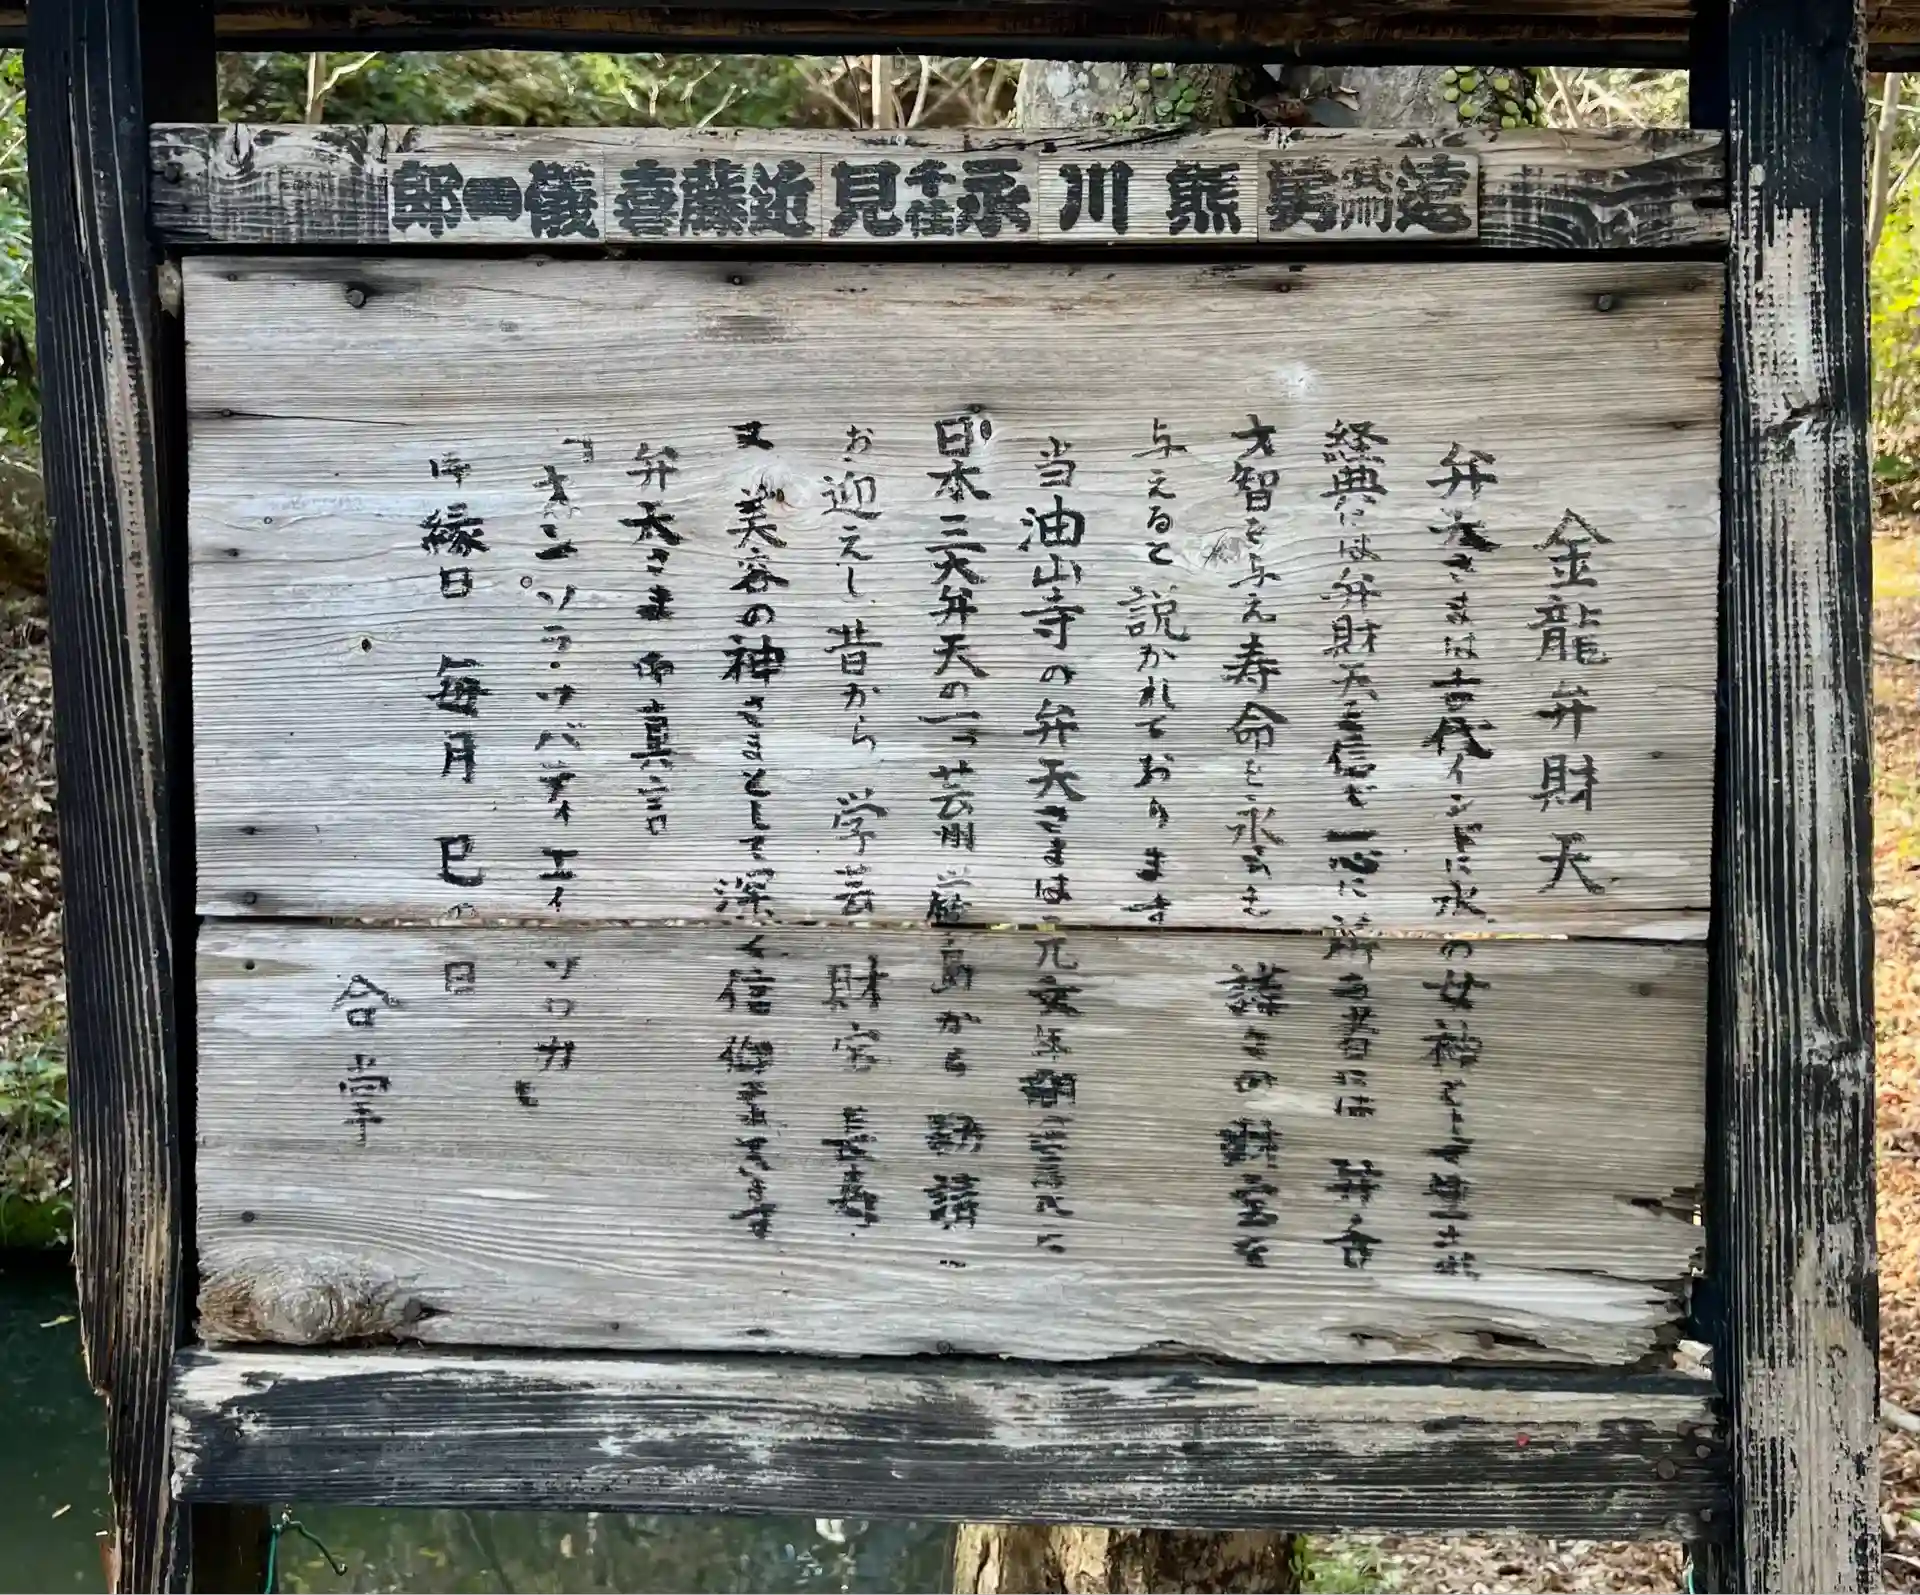 郎一儀 喜藤近 見千社永 川熊
金龍弁財天
弁天さまは古代インドに水の女神として
経典には弁財天を信じ一心に祈る者には 弁舌
才智を与え寿命を永らえ 諸々の財宝を
与えると説かれております
当油山寺の弁天さまは元文年間
日本三大弁天の一つ芸州厳島から勧請
お迎えし昔から 学芸 財宝 長寿
又 美容の神さまとして深く信仰されています
弁天さま御真言
オン ソラ サバティ エイ ソワカ
御縁日 毎月 巳の日
合掌